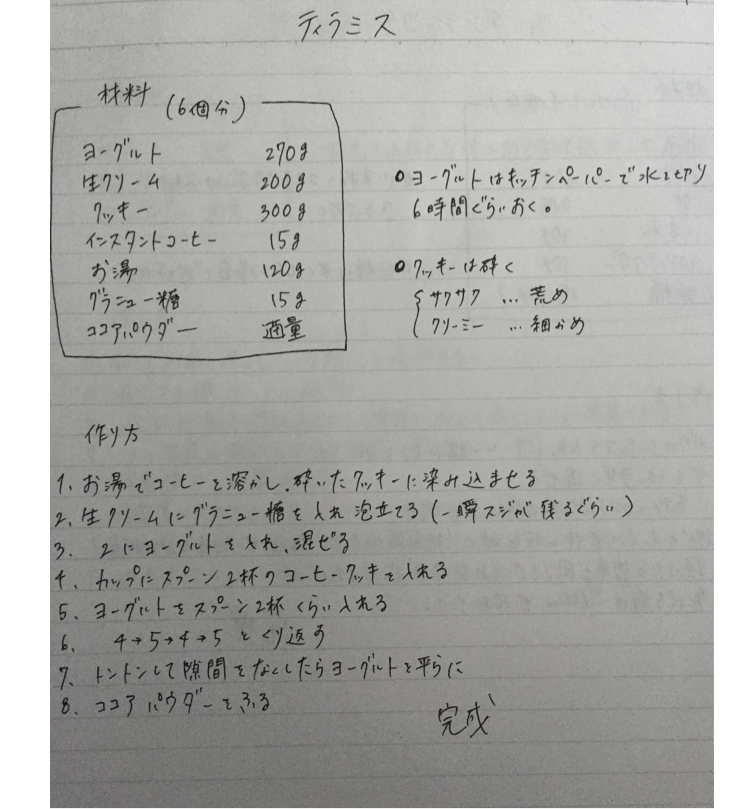 ティラミス
材料 (6個分)
ヨーグルト 270g
生クリーム 200g
クッキー 300g
インスタントコーヒー 15g
お湯 120g
グラニュー糖 15g
ココアパウダー 適量
○ ヨーグルトはキッチンペーパーで水を切り
6時間ぐらいおく。
○ クッキーは砕く
サクサク … 荒め
クリーミー … 細かめ
作り方
1. お湯でコーヒーを溶かし、砕いたクッキーに染み込ませる
2. 生クリームにグラニュー糖を入れ泡立てる(一瞬スジが残るぐらい)
3. 2にヨーグルトを入れ、混ぜる
4. カップにスプーン2杯のコーヒークッキーを入れる
5. ヨーグルトをスプーン2杯くらい入れる
6. 4→5→4→5とくり返す
7. トントンして隙間をなくしたらヨーグルトを平らに
8. ココアパウダーをふる
完成